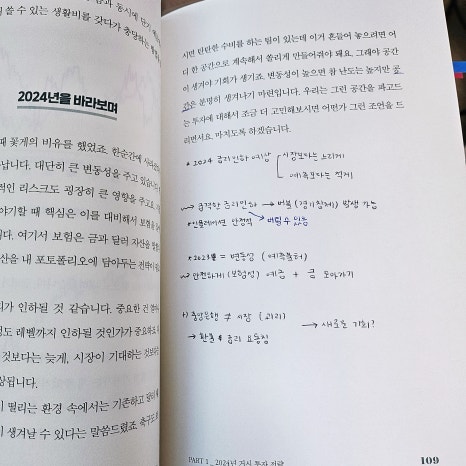 쓸 수 있는 생활비를 갖다가 충당하는
2024년을 바라보며
때 꽃게의 비유를 했었죠. 한순간에
납니다. 대단히 큰 변동성을 주고 있습니
적인 리스크로도 굉장히 큰 영향을 주고
야기할 때 핵심은 이를 대비해서 보험을
니다. 여기서 보험은 금과 달러 자산을
산을 내 포트폴리오에 담아두는 전략이
리가 인하될 것 같습니다. 중요한 건
정도 레벨까지 인하될 것인가가 중요하죠
것보다는 늦게, 시장이 기대하는 것보다
상됩니다.
이 떨리는 환경 속에서는 기존하고
이 생겨날 수 있다는 말씀드렸죠 축구로
시면 탄탄한 수비를 하는 팀이 있는데 이거 흔들어 놓으려면 어
디 한 공간으로 계속해서 쏠리게 만들어줘야 돼요. 그래야 공간
이 생겨야 기회가 생기죠. 변동성이 높으면 참 난도는 높지만 공
간은 분명히 생겨나기 마련입니다. 우리는 그런 공간을 파고드
는 투자에 대해서 조금 더 고민해보시면 어떤가 그런 조언을 드
리면서요. 마치도록 하겠습니다.
* 2024 금리인하 예상 시장보다는 느리게
예측보다는 적게
급격한 금리인하 → 버블(경기침체) 발생 가능
*인플레이션 안정적 → 버틸 수 있음
*2023년 = 변동성 (예측불허)
안전하게 (보험성) 예금 + 금 모아가기
중앙은행 ≠ 시장 (괴리)
→ 환율 & 금리 요동침 → 새로운 기회?
PART 1_ 2024년 거시 투자 전략 109